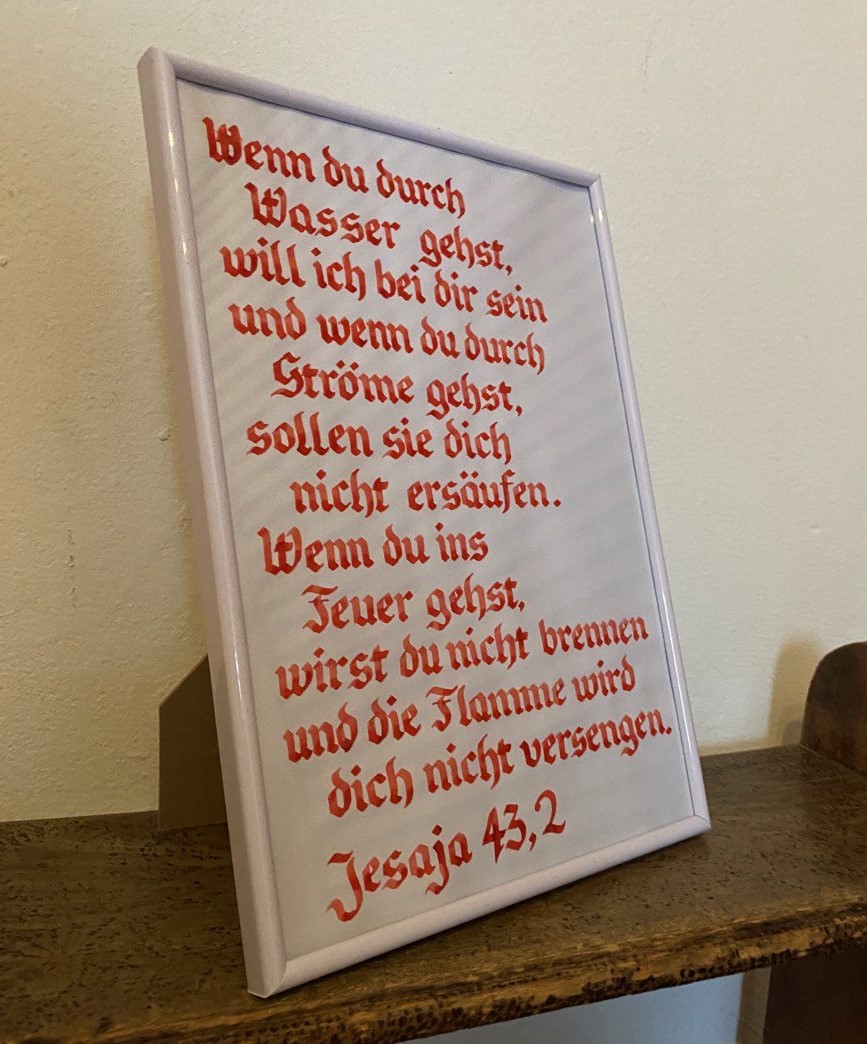 Wenn du durch
Wasser gehst,
will ich bei dir sein
und wenn du durch
Ströme gehst,
sollen sie dich
nicht ersäufen.
Wenn du ins
Feuer gehst,
wirst du nicht brennen
und die Flamme wird
dich nicht versengen.
Jesaja 43,2